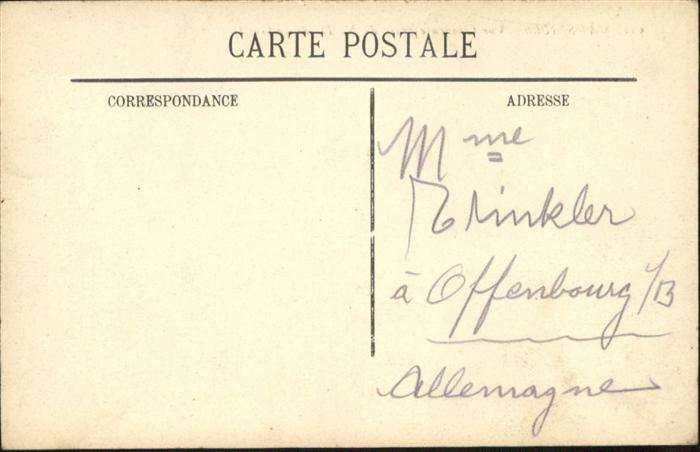 CARTE POSTALE
CORRESPONDANCE
ADRESSE
Mme
Trinkler
à Offenbourg i/B
Allemagne